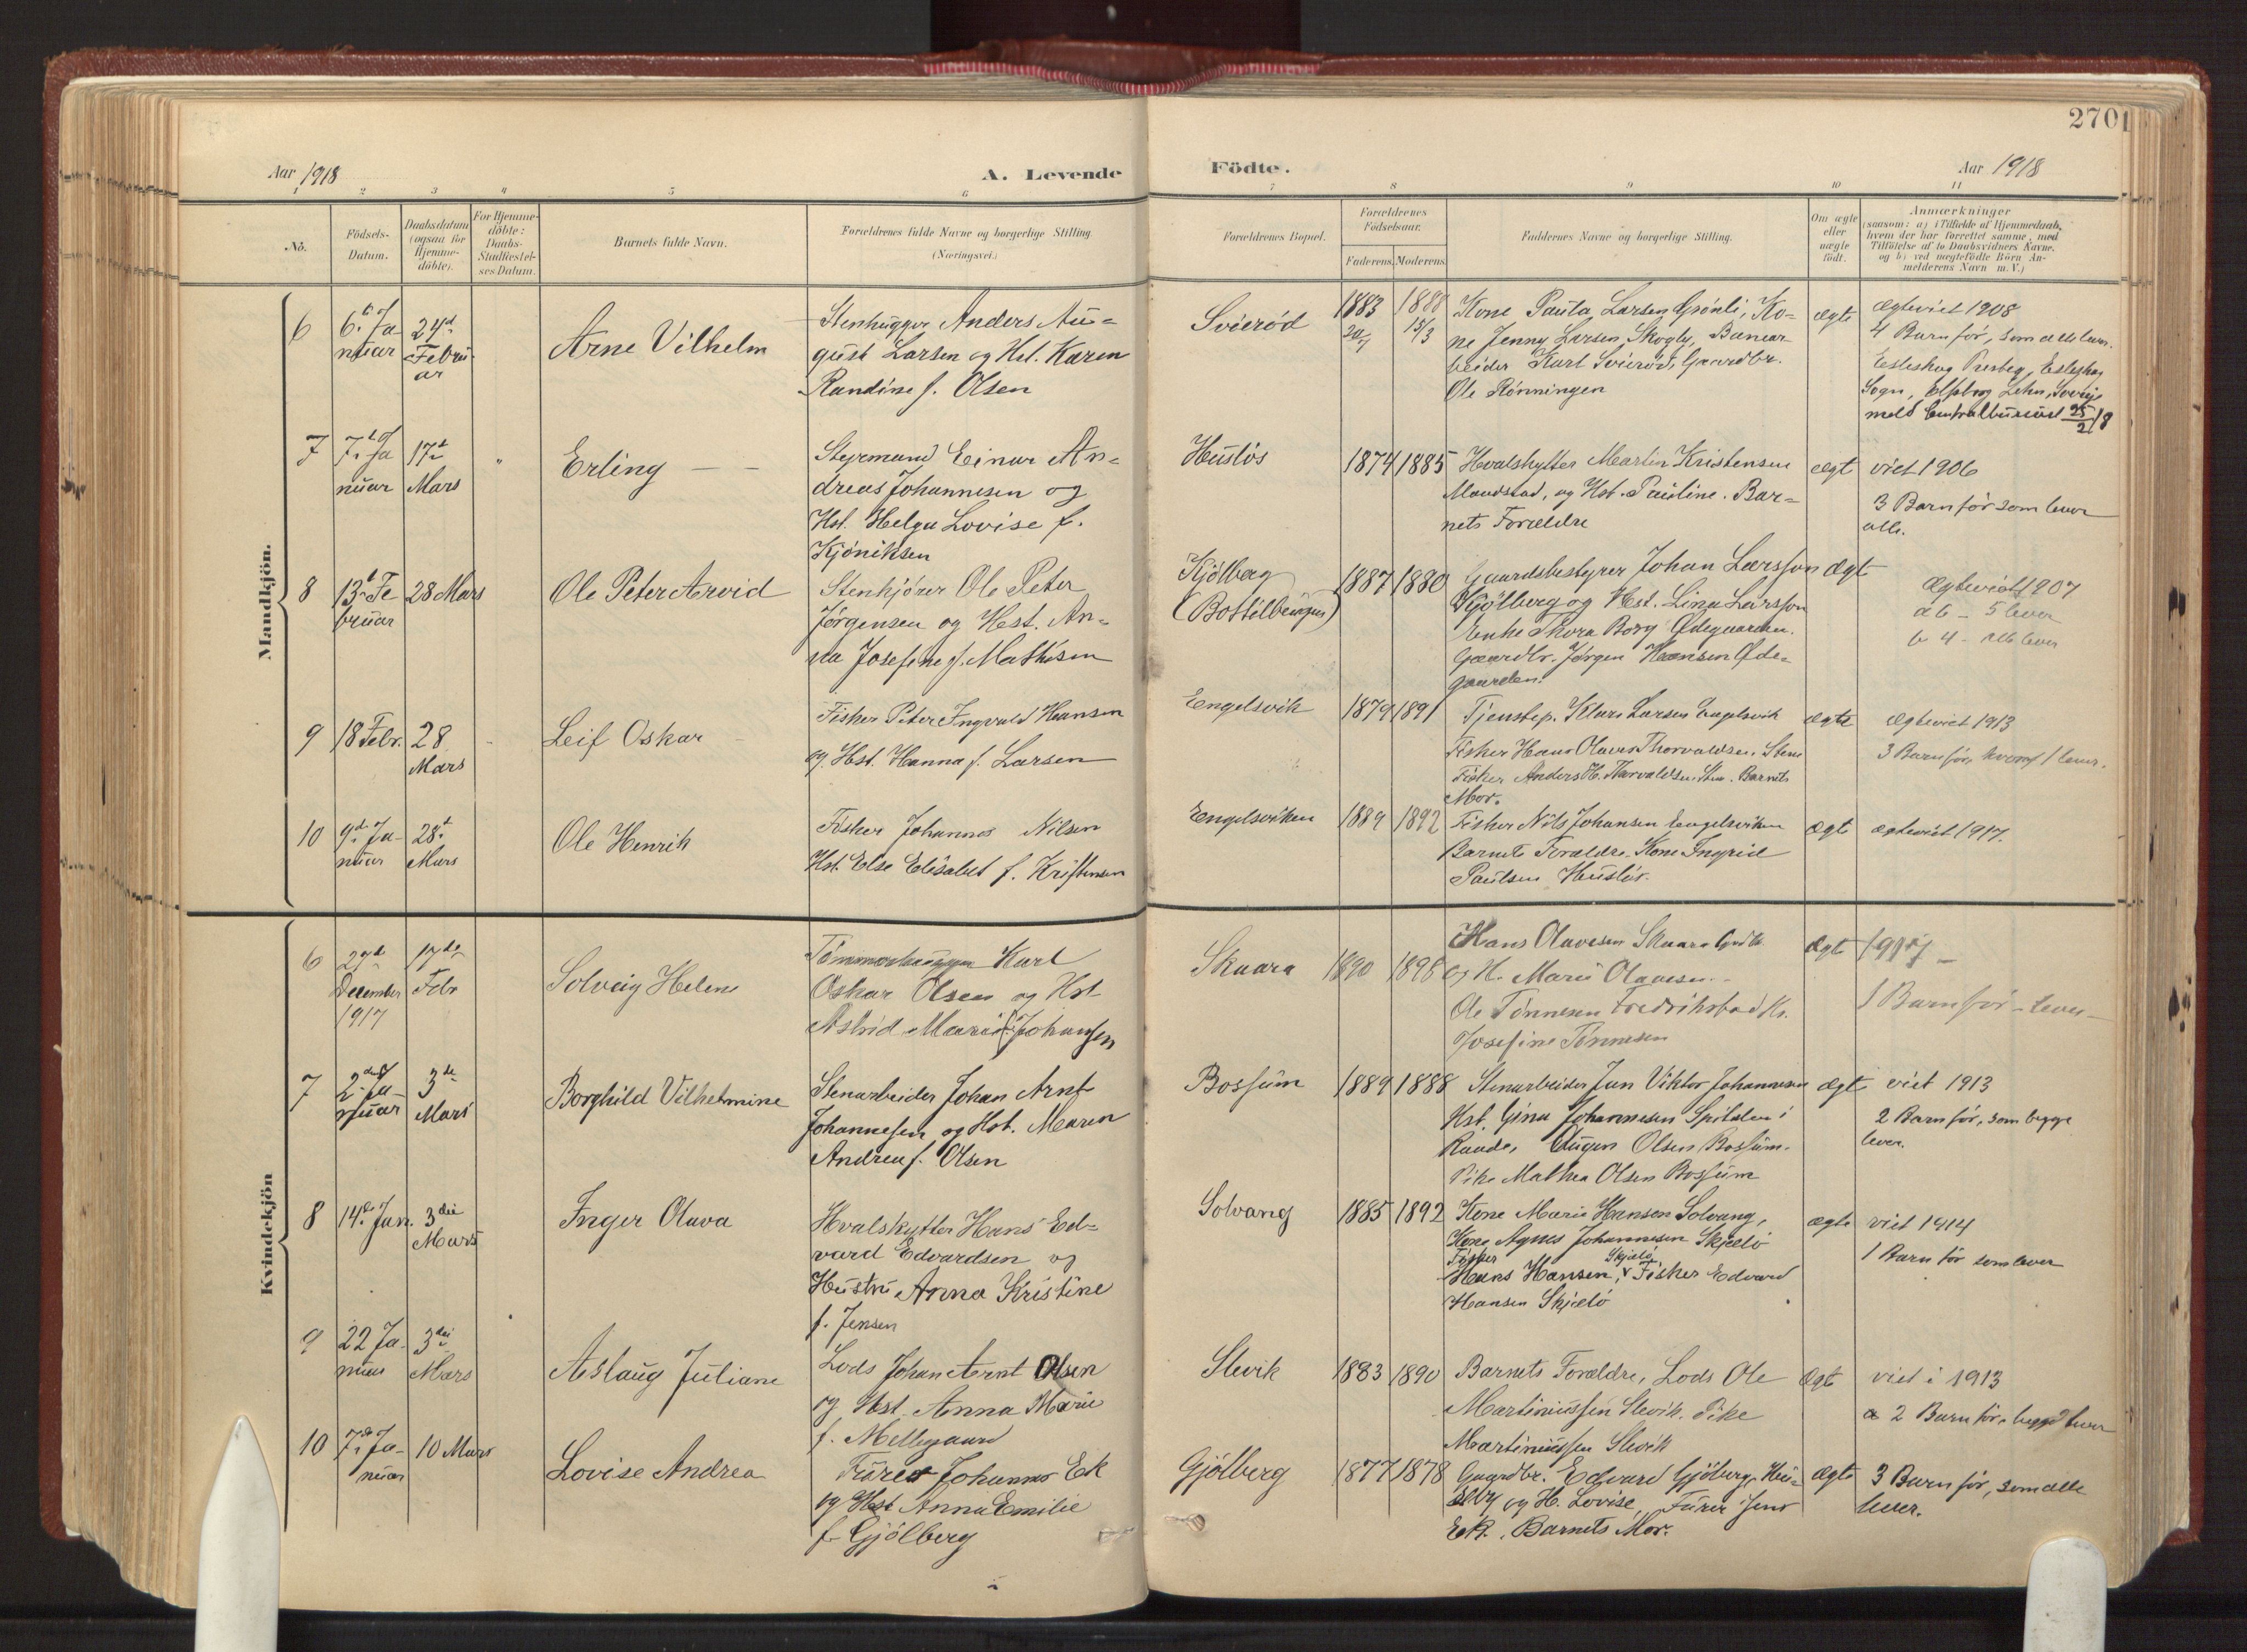 270
Aar 1918
A. Levende
Födte.
Aar 1918
1 2 3 4 5 6 7 8 9 10 11
No.
Födsels-
Datum.
Daabsdatum
(ogsaa for
Hjemme-
döbte).
For Hjemme-
döbte:
Daabs-
Stadfæstel-
ses Datum.
Barnets fulde Navn.
Forældrenes fulde Navne og borgerlige Stilling
(Næringsvei.)
Forældrenes Bopæl.
Forældrenes
Födselsaar.
Faderens. Moderens.
Faddernes Navne og borgerlige Stilling.
Om ægte
eller
uægte
födt.
Anmærkninger
(saasom: a) i Tilfælde af Hjemmedaab,
hvem der har forrettet samme, med
Tilföielse af to Daabsvidners Navne.
og b) ved uægtefödte Börn An-
melderens Navn m. V.)
Mandkjön.
6
6. Ja-
nuar
24d
Febru-
ar
Arne Vilhelm
Stenhugger Anders Au-
gust Larsen og Hst. Karen
Randine f. Olsen
Svieröd
1883
1888
15/3
Kone Paula Larsen Grönli, Ko-
ne Jenny Larsen, Skogly, Banear-
beider Karl Svieröd, Gaardbr.
Ole Rönningen
ægte
Ægteviet 1908
4 Barn för, som alle lever.
Sogn, Elfsborg Lehn, Sverige
meld Centralbureaet 25/2 18
7
7. Ja
nuar
17d
Mars
Erling — —
Styrmand Einar An-
dreas Johannesen og
Hst. Helga Lovise f.
Kjöniksen
Huslös
1874
1885
Hvalskytter Martin Kristensen
og Hst. Pauline. Bar-
nets Forældre
ægt
viet 1906
3 Barn för som lever
alle.
8
13d Fe
bruar
28 Mars
Ole Peter Arvid
Stenkjörer Ole Peter
Jörgensen og Hst. An-
na Josefine f. Mathisen
Kjölberg
1887
1880
Gaardsbestyrer Johan Larsson
Kjölberg og Hst. Lina Larsson
Enke Thora Borg Ödegaarden.
Gaardbr. Jörgen Hansen Öde-
gaarden.
Ægt
Ægteviet 1907
a 6 - 5 lever
b 4 - alle lever
9
18 Febr.
28
Mars
Leif Oskar
Fisker Peter Ingvald Hansen
og Hst. Hanna f. Larsen
Engelsvik
1879
1891
Tjenstep. Klara Larsen Engelsvik
Fisker Hans Olaves Thorvaldsen, Stene
Fisker Anders H. Thorvaldsen Stene. Barnets
Mor.
ægte
Ægteviet 1913
3 Barn för, hvoraf 1 lever.
10
9d Ja-
nuar
28d
Mars
Ole Henrik
Fisker Johannes Nilsen
Hst. Else Elisabet f. Kristensen
Engelsviken
1889
1892
Fisker Nils Johansen Engelsviken
Barnets Forældre. Kone Ingrid
Paulsen Huslös.
ægte
ægteviet 1917.
Kvindekjön
6
29d
December
1917
17de
Febr
Solveig Helene
Tömmerhugger Karl
Oskar Olsen og Hst
Astrid Marie f. Johansen
Skaara
1890
1898
Hans Olavesen Skaara
og H. Marie Olavesen
Ole Tönnesen Fredrikstad K.
Josefine Tönnesen
ægte
1917 —
1 Barn för - lever -
7
2den Ja-
nuar
3de
Mars
Borghild Vilhelmine
Stenarbeider Johan Arnt
Johannesen og Hst. Maren
Andrea f. Olsen
Bossum
1889
1888
Stenarbeider Jan Viktor Johannesen
Hst. Gina Johannesen Spitalen i
Raade, Eugen Olsen Bossum.
Pike Mathea Olsen Bossum
ægte
viet 1913
2 Barn för, som begge
lever.
8
14de Jan.
3die
Mars
Inger Olava
Hvalskytter Hans Ed-
vard Edvardsen og
Hustru Anna Kristine
f. Jensen
Solvang
1885
1892
Kone Marie Hansen Solvang,
Kone Agnes Johannesen Skjelö
Fisker Skjelö
Hans Hansen, v Fisker Edvard
Hansen Skjelö
ægte
viet 1914
1 Barn för som lever
9
22 Ja-
nuar
3die
Mars
Aslaug Juliane
Lods Johan Arnt Olsen
og Hst. Anna Marie
f. Mellegaard
Slevik
1883
1890
Barnets Forældre, Lods Ole
Martiniussen Slevik. Pike
Martiniussen Slevik
Ægte
viet i 1913
a 2 Barn för, begge lever
10
7de Ja-
nuar
10 Mars
Lovise Andrea
Furer Johannes Ek
og Hst Anna Emilie
f. Gjölberg
Gjölberg
1877
1878
Gaardbr. Edvard Gjölberg,
og H. Lovise, Furer Jens
Ek. Barnets Mor.
ægte
3 Barn för, som alle
lever.